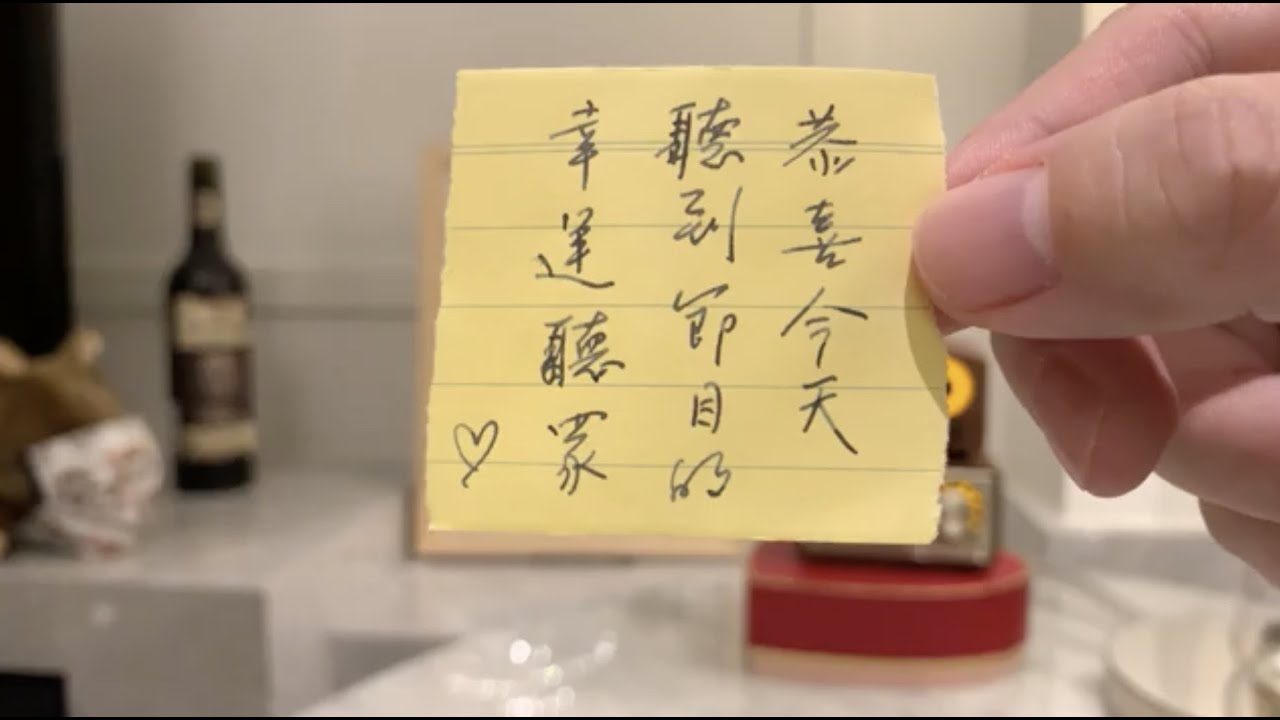 恭喜今天
聽到節目的
幸運聽眾